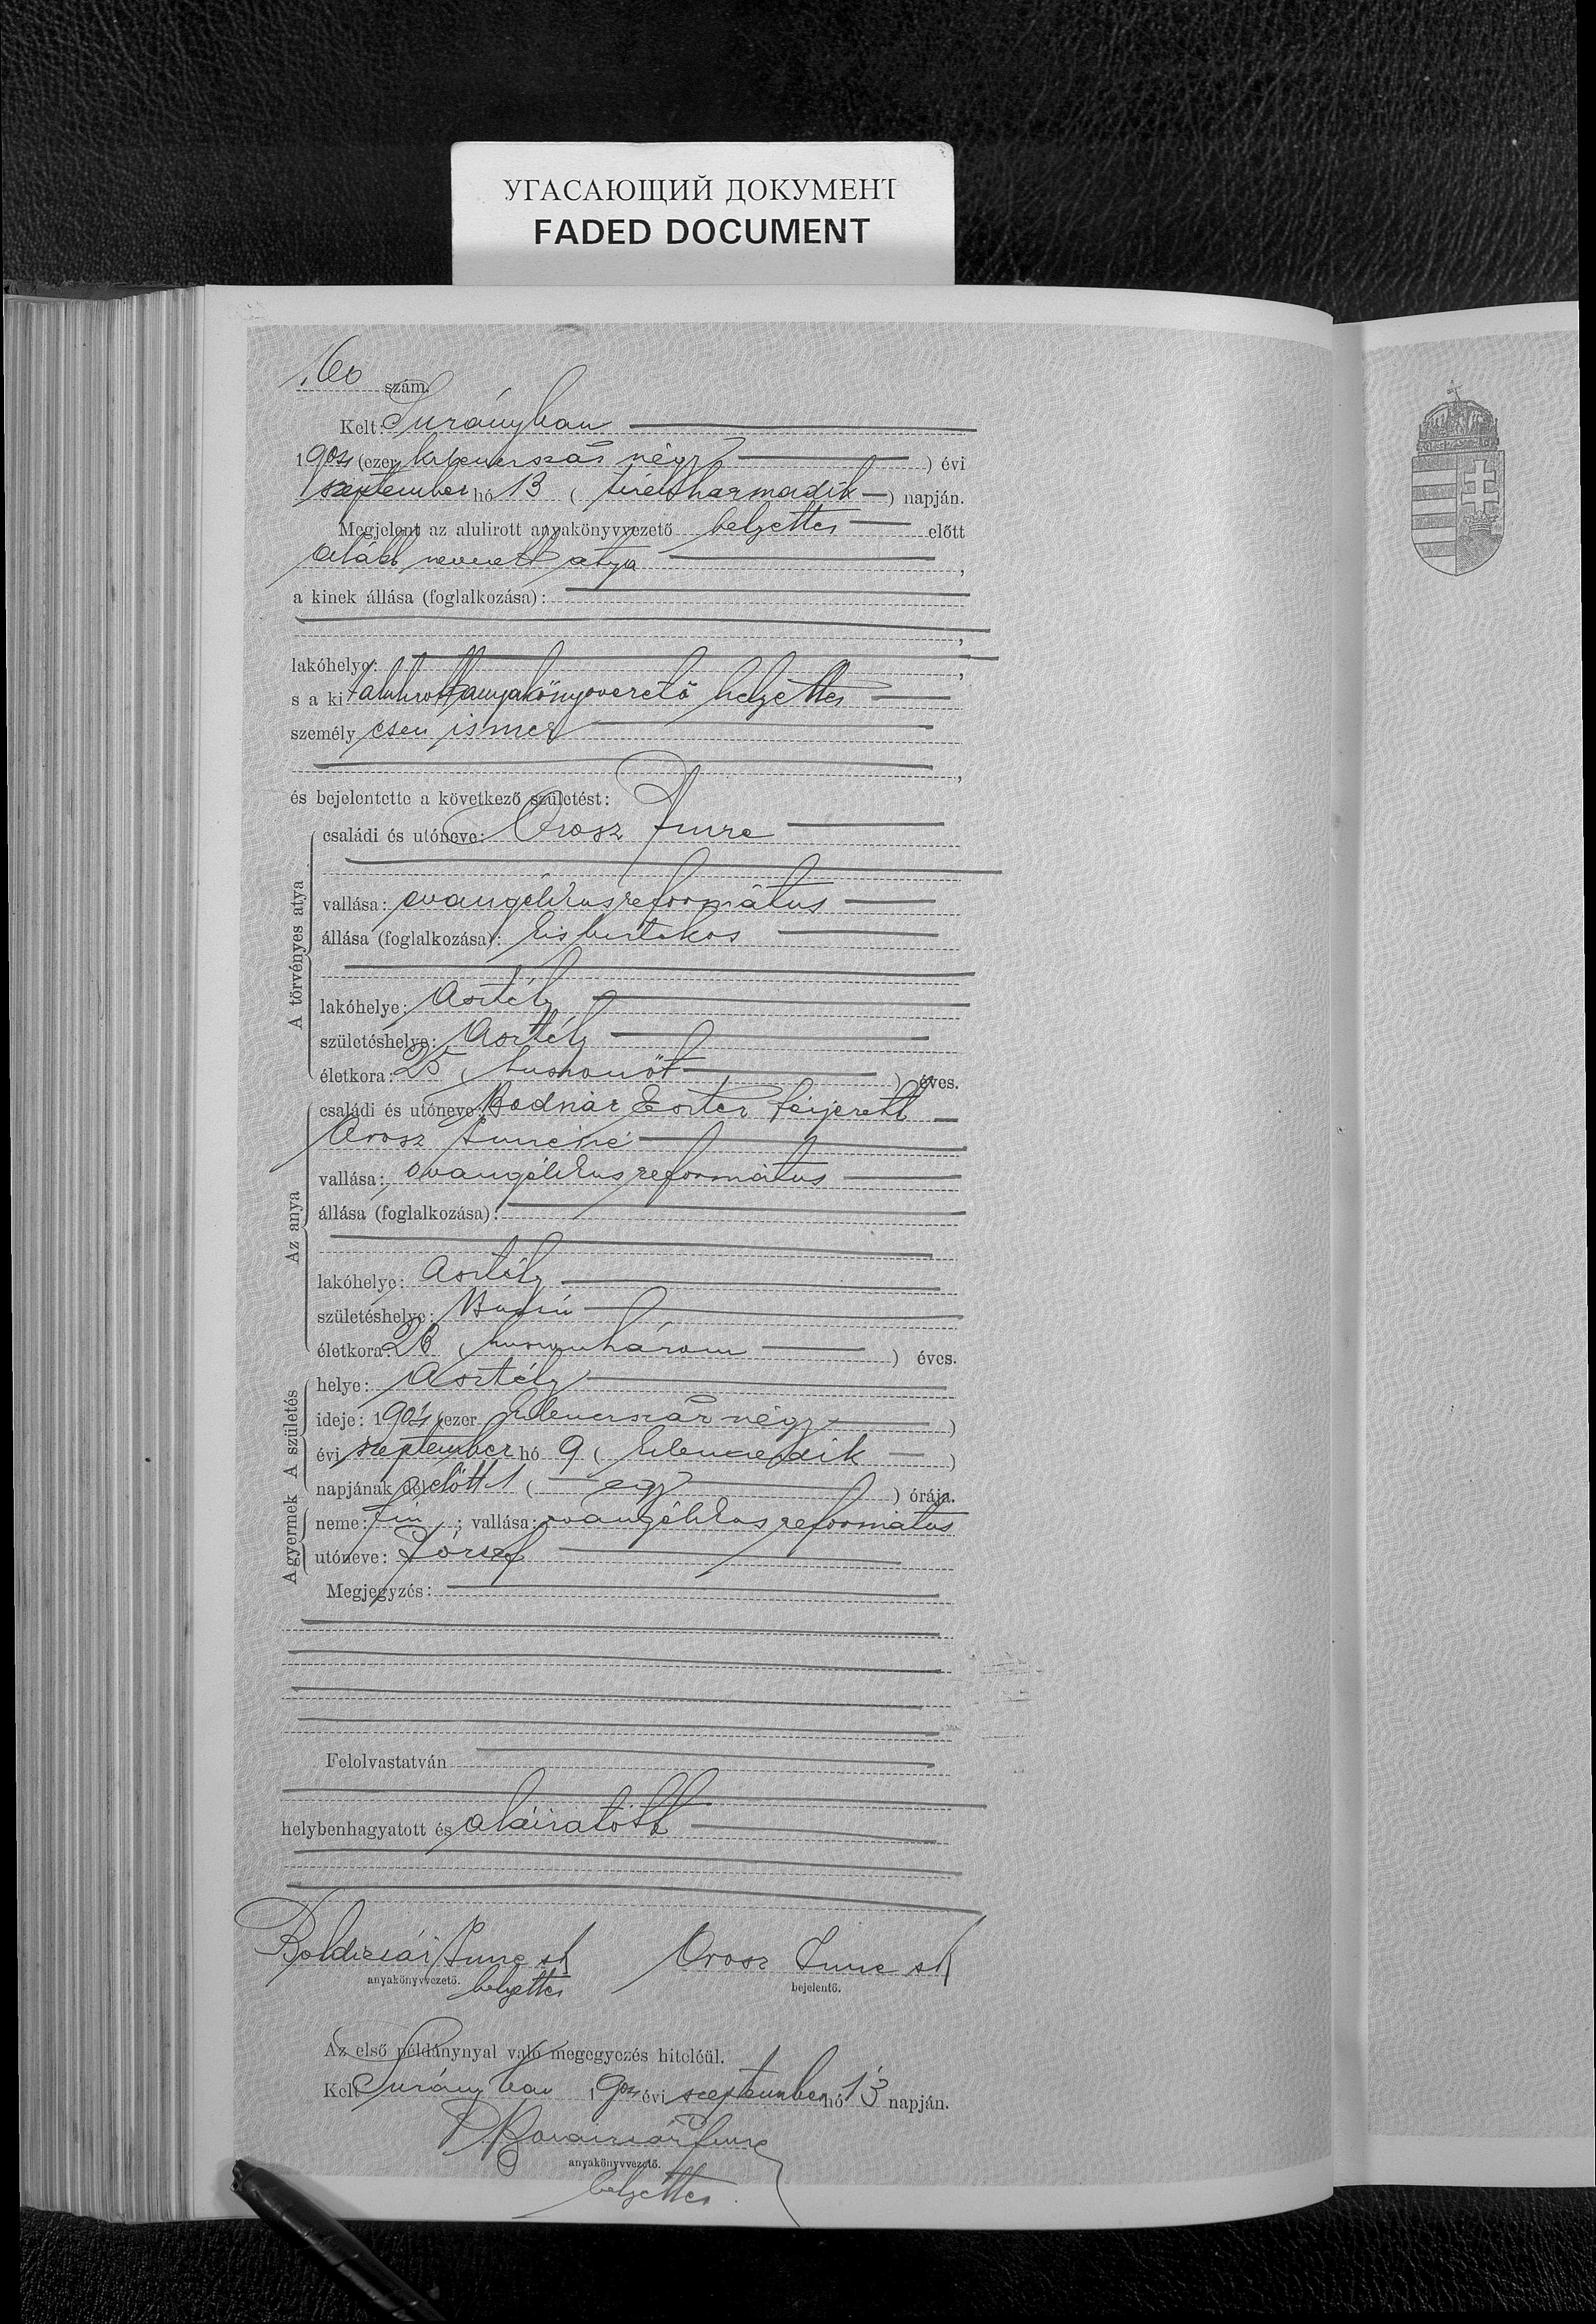 УГАСАЮЩИЙ ДОКУМЕНТ
FADED DOCUMENT
160 szám.
Kelt: Surányban
1904 (ezer kilenczszáz négy) évi
szeptember hó 13 (tizenharmadik) napján.
Megjelent az alulirott anyakönyvvezető helyettes előtt
alább nevezett atya,
a kinek állása (foglalkozása):
,
lakóhelye:
,
s a kit alulirott anyakönyvvezető helyettes
személyesen ismer
,
és bejelentette a következő születést:
A törvényes atya
családi és utóneve: Orosz Imre
vallása: evangélikus református
állása (foglalkozása): kis birtokos
lakóhelye: Asztély
születéshelye: Asztély
életkora: 25 (huszonöt) éves.
Az anya
családi és utóneve: Bodnár Eszter férjezett
Orosz Imréné
vallása: evangélikus református
állása (foglalkozása):
lakóhelye: Asztély
születéshelye:
életkora: 23 (huszonhárom) éves.
A születés
helye: Asztély
ideje: 1904 (ezer kilenczszáz négy)
évi szeptember hó 9 (kilenczedik)
napjának délelőtt 1 (egy) órája.
A gyermek
neme: fiu; vallása: evangélikus református
utóneve: József
Megjegyzés:
Felolvastatván
helybenhagyatott és aláiratott
Boldizsár Imre sk Orosz Imre sk
anyakönyvvezető. helyettes bejelentő.
Az első példánynyal való megegyezés hiteléül.
Kelt Surányban 1904 évi szeptember hó 13 napján.
Boldizsár Imre
anyakönyvvezető.
helyettes